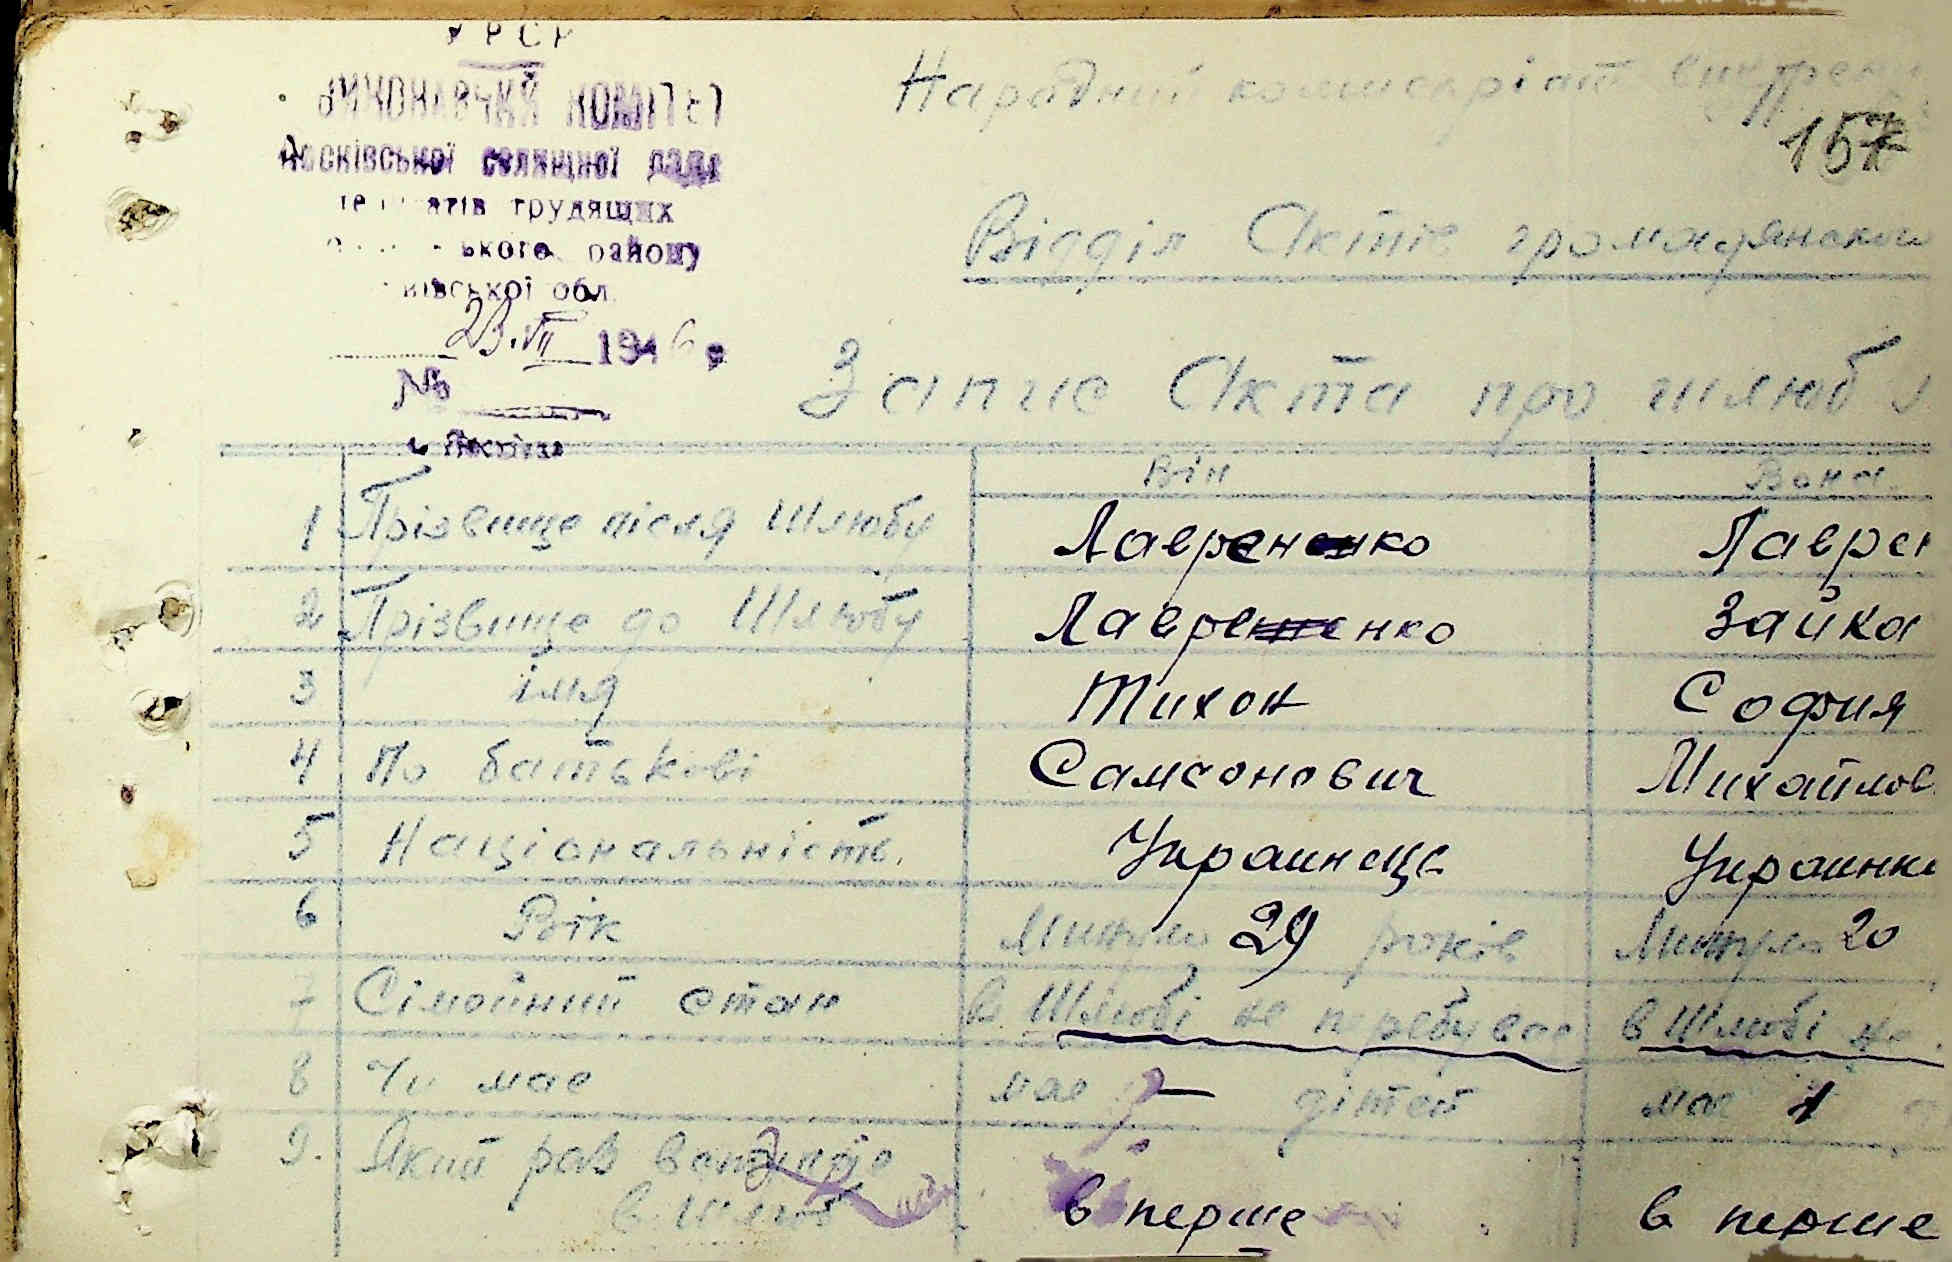 УРСР
ВИКОНАВЧИЙ КОМІТЕТ
Носківської селищної ради
депутатів трудящих
ького району
обл.
23.VII 1946 р.
№
Народний комисаріат внутрен
157
Відділ Актів громадянсько
Запис Акта про шлюб
Він Вона
1 Прізвище після Шлюбу Лавренко Лаврен
2 Прізвище до Шлюбу Лавренко Зайка
3 імя Тихон София
4 По батькові Самсонович Михайлов
5 Національність. Украинець Украинка
6 Вік Минуло 29 років Минуло 20
7 Сімейний стан в Шлюбі не перебував в Шлюбі не
8 Чи має має — дітей має 1
9. Який раз вступає в перше в перше
в шлюб